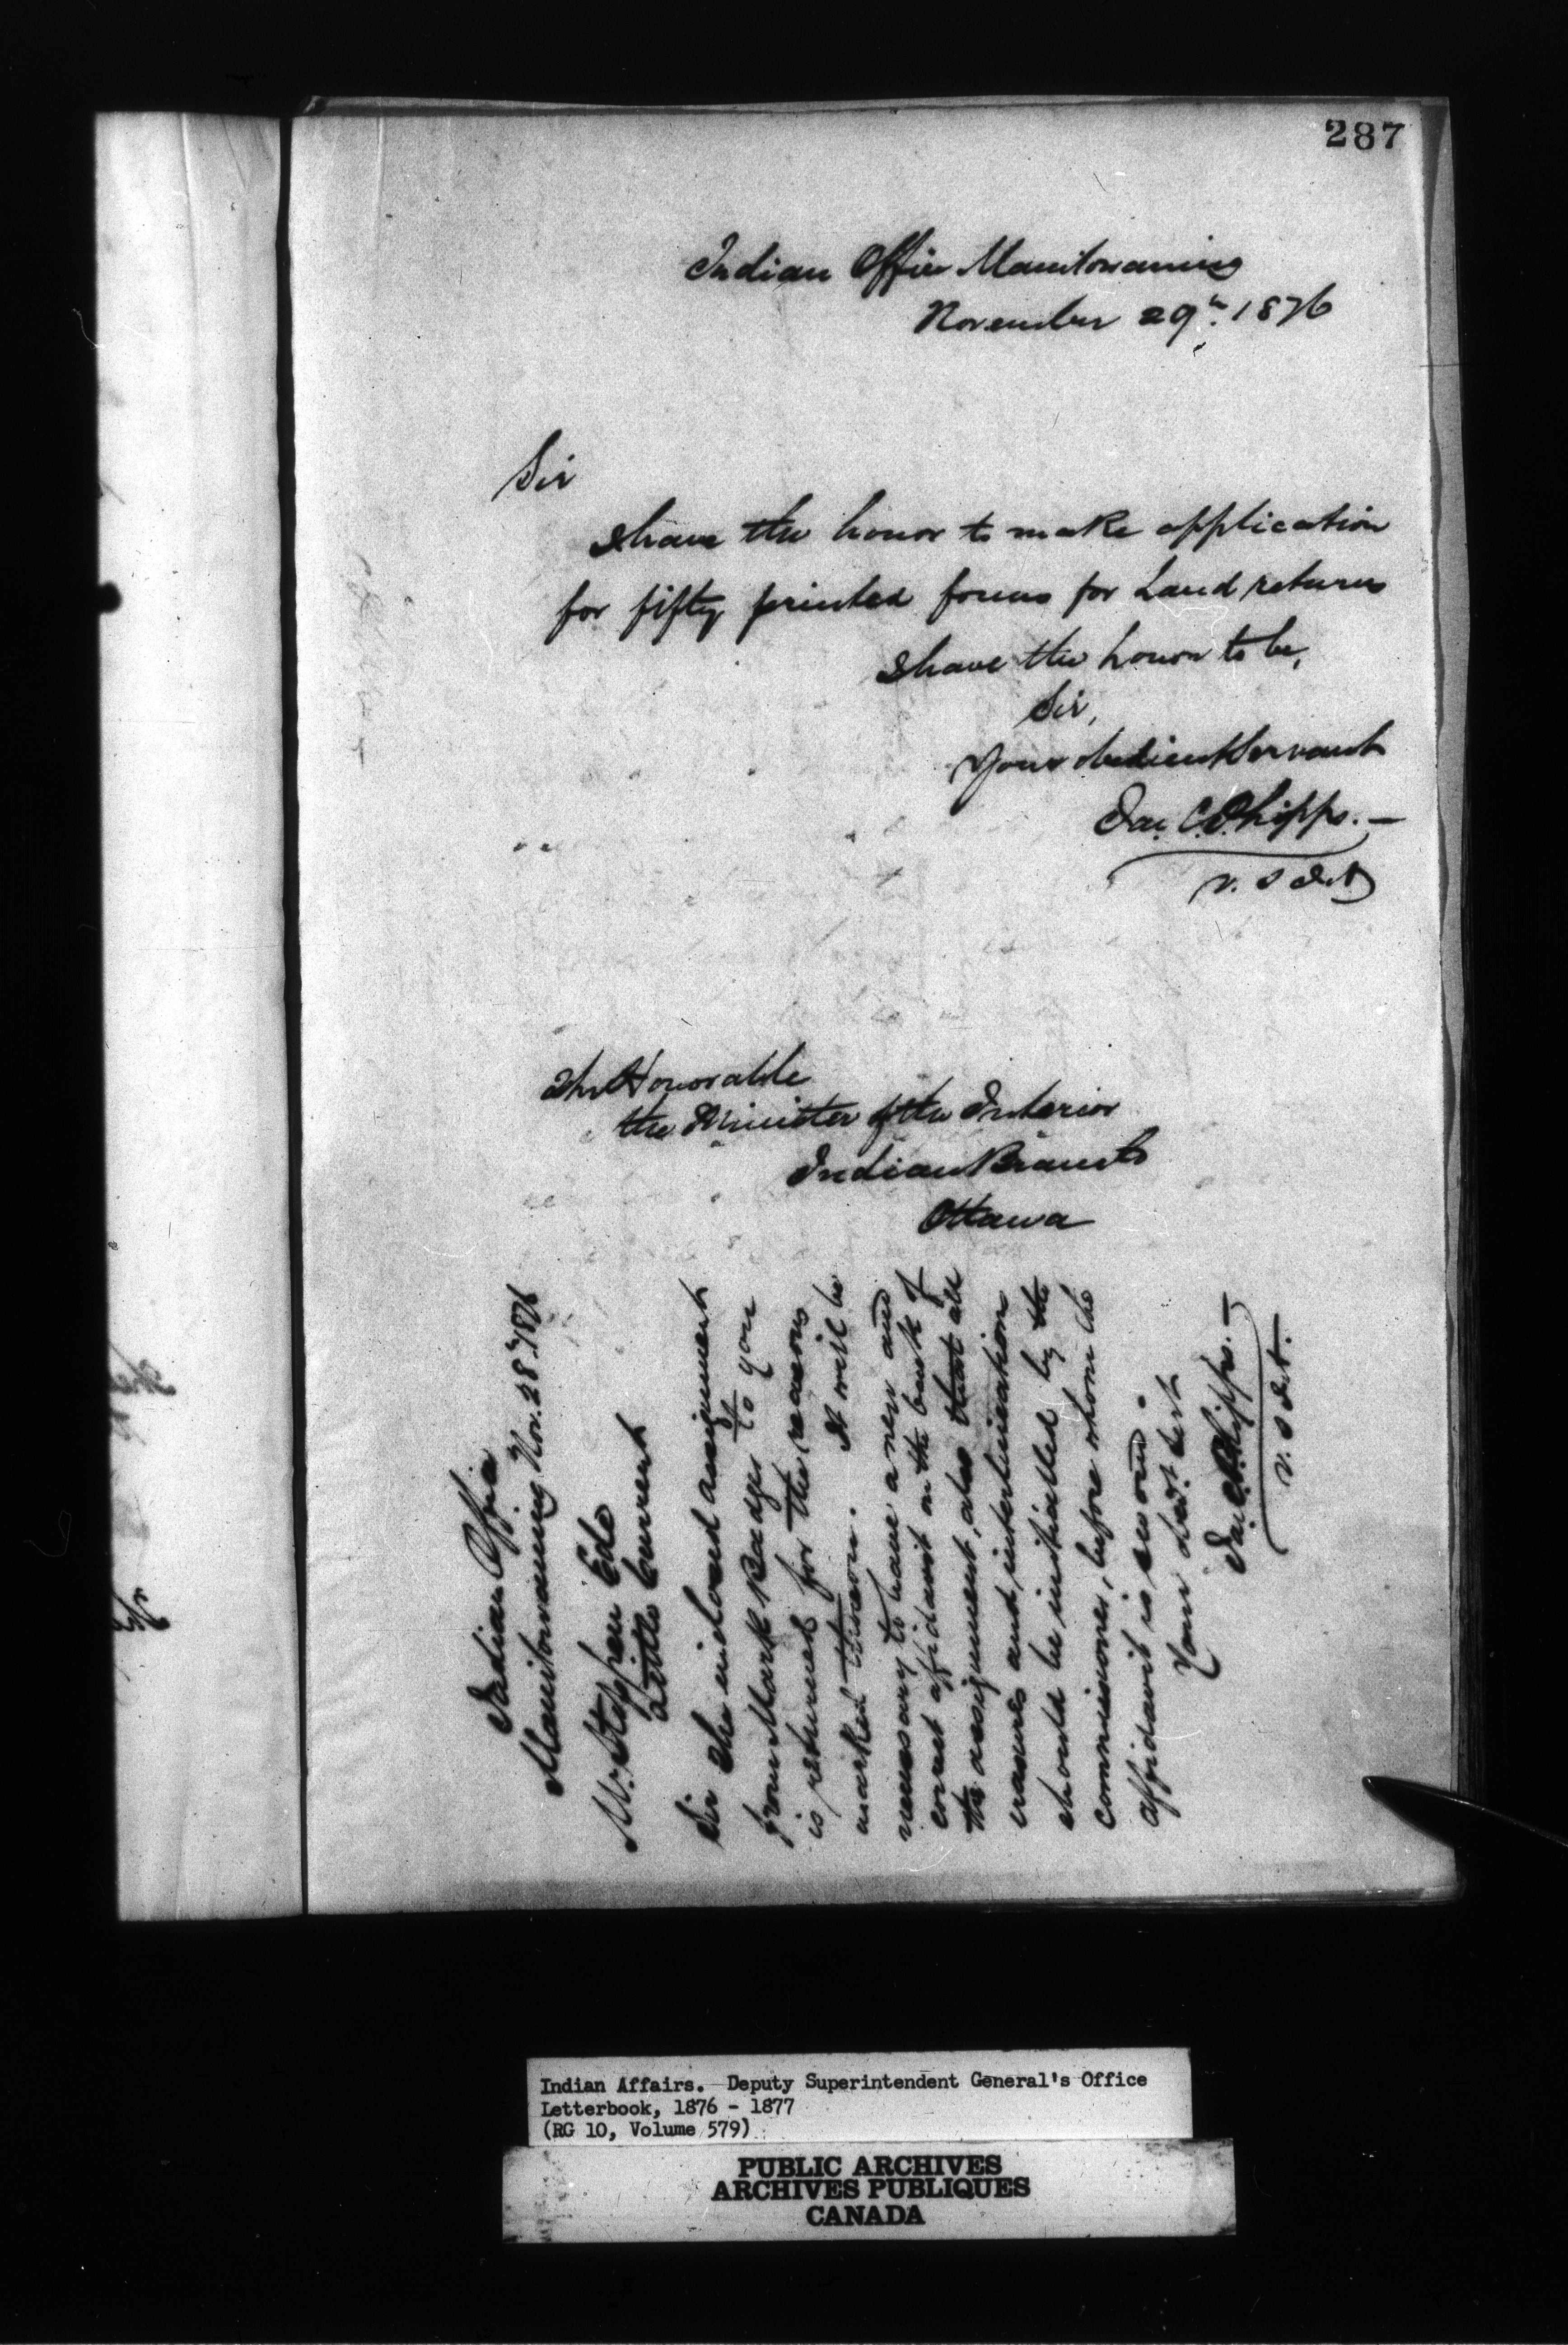 287
Indian Office Manitowaning
November 29th. 1876
Sir
I have the honor to make application
for fifty printed forms for Land returns
I have the honor to be,
Sir,
Your obedient Servant
Jas. C. Phipps. —
V. S I. A
The Honorable
the Minister of the Interior
Indian Branch
Ottawa
Indian Office
Manitowaning Nov. 28th 1876
Mr. Stephen Ede
Little Current
Sir The enclosed assignment
from Mark Badger to you
is returned for the reasons
marked thereon. It will be
necessary to have a new and
correct affidavit on the back of
the assignment, also that all
erasures and interlineations
should be initialled by the
commissioner, before whom the
affidavit is sworn.
Your obedt. Servt
Jas. C. Phipps. —
V. S I. A.
Indian Affairs. Deputy Superintendent General's Office
Letterbook, 1876 - 1877
(RG 10, Volume 579)
PUBLIC ARCHIVES
ARCHIVES PUBLIQUES
CANADA